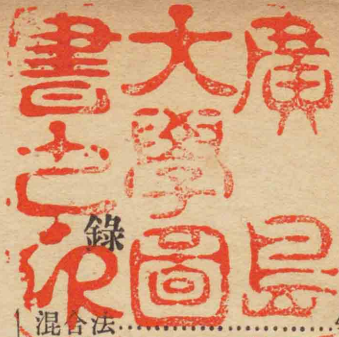 廣島
大學圖
書之印
錄
混合法